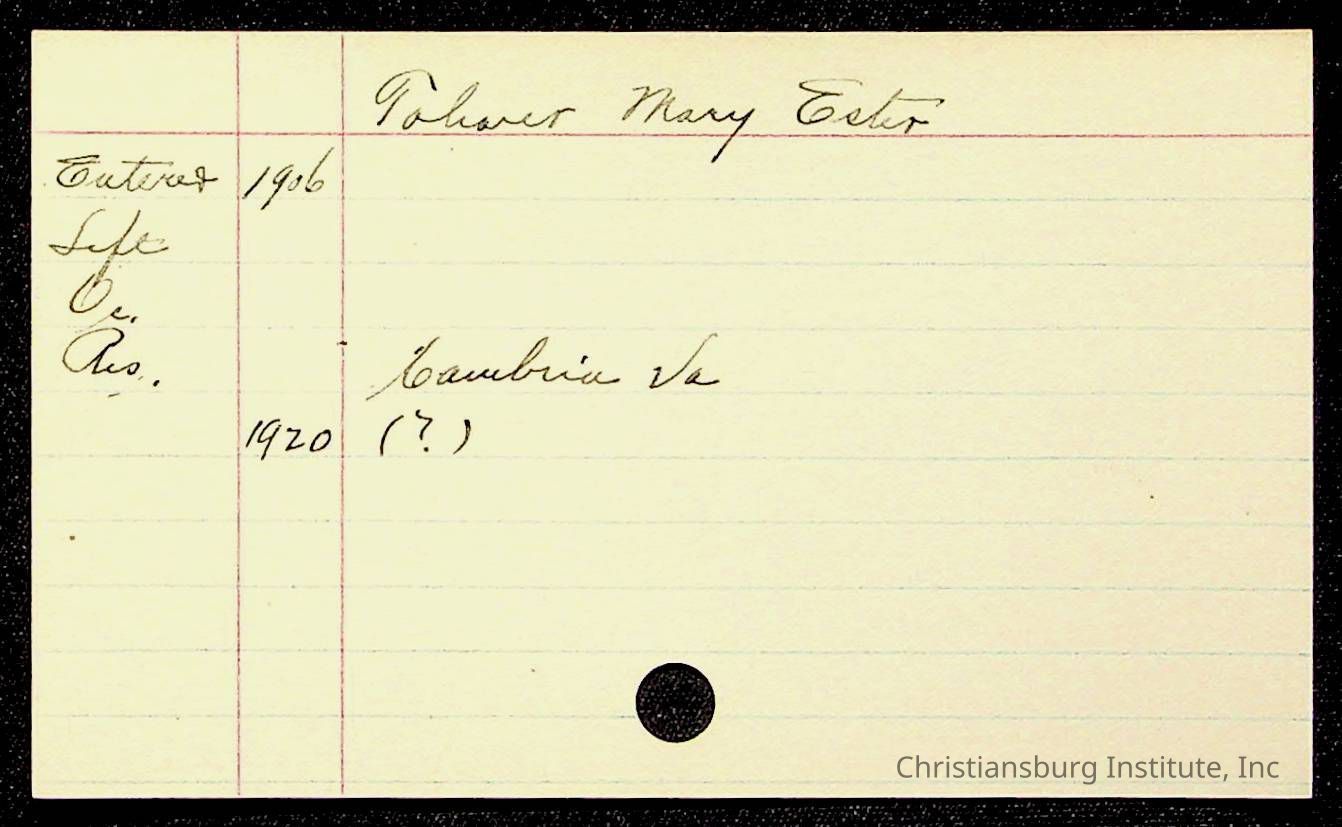 Toliver Mary Ester
Entered 1906
Left
Oc.
Res. Cambria Va
1920 (?)
Christiansburg Institute, Inc